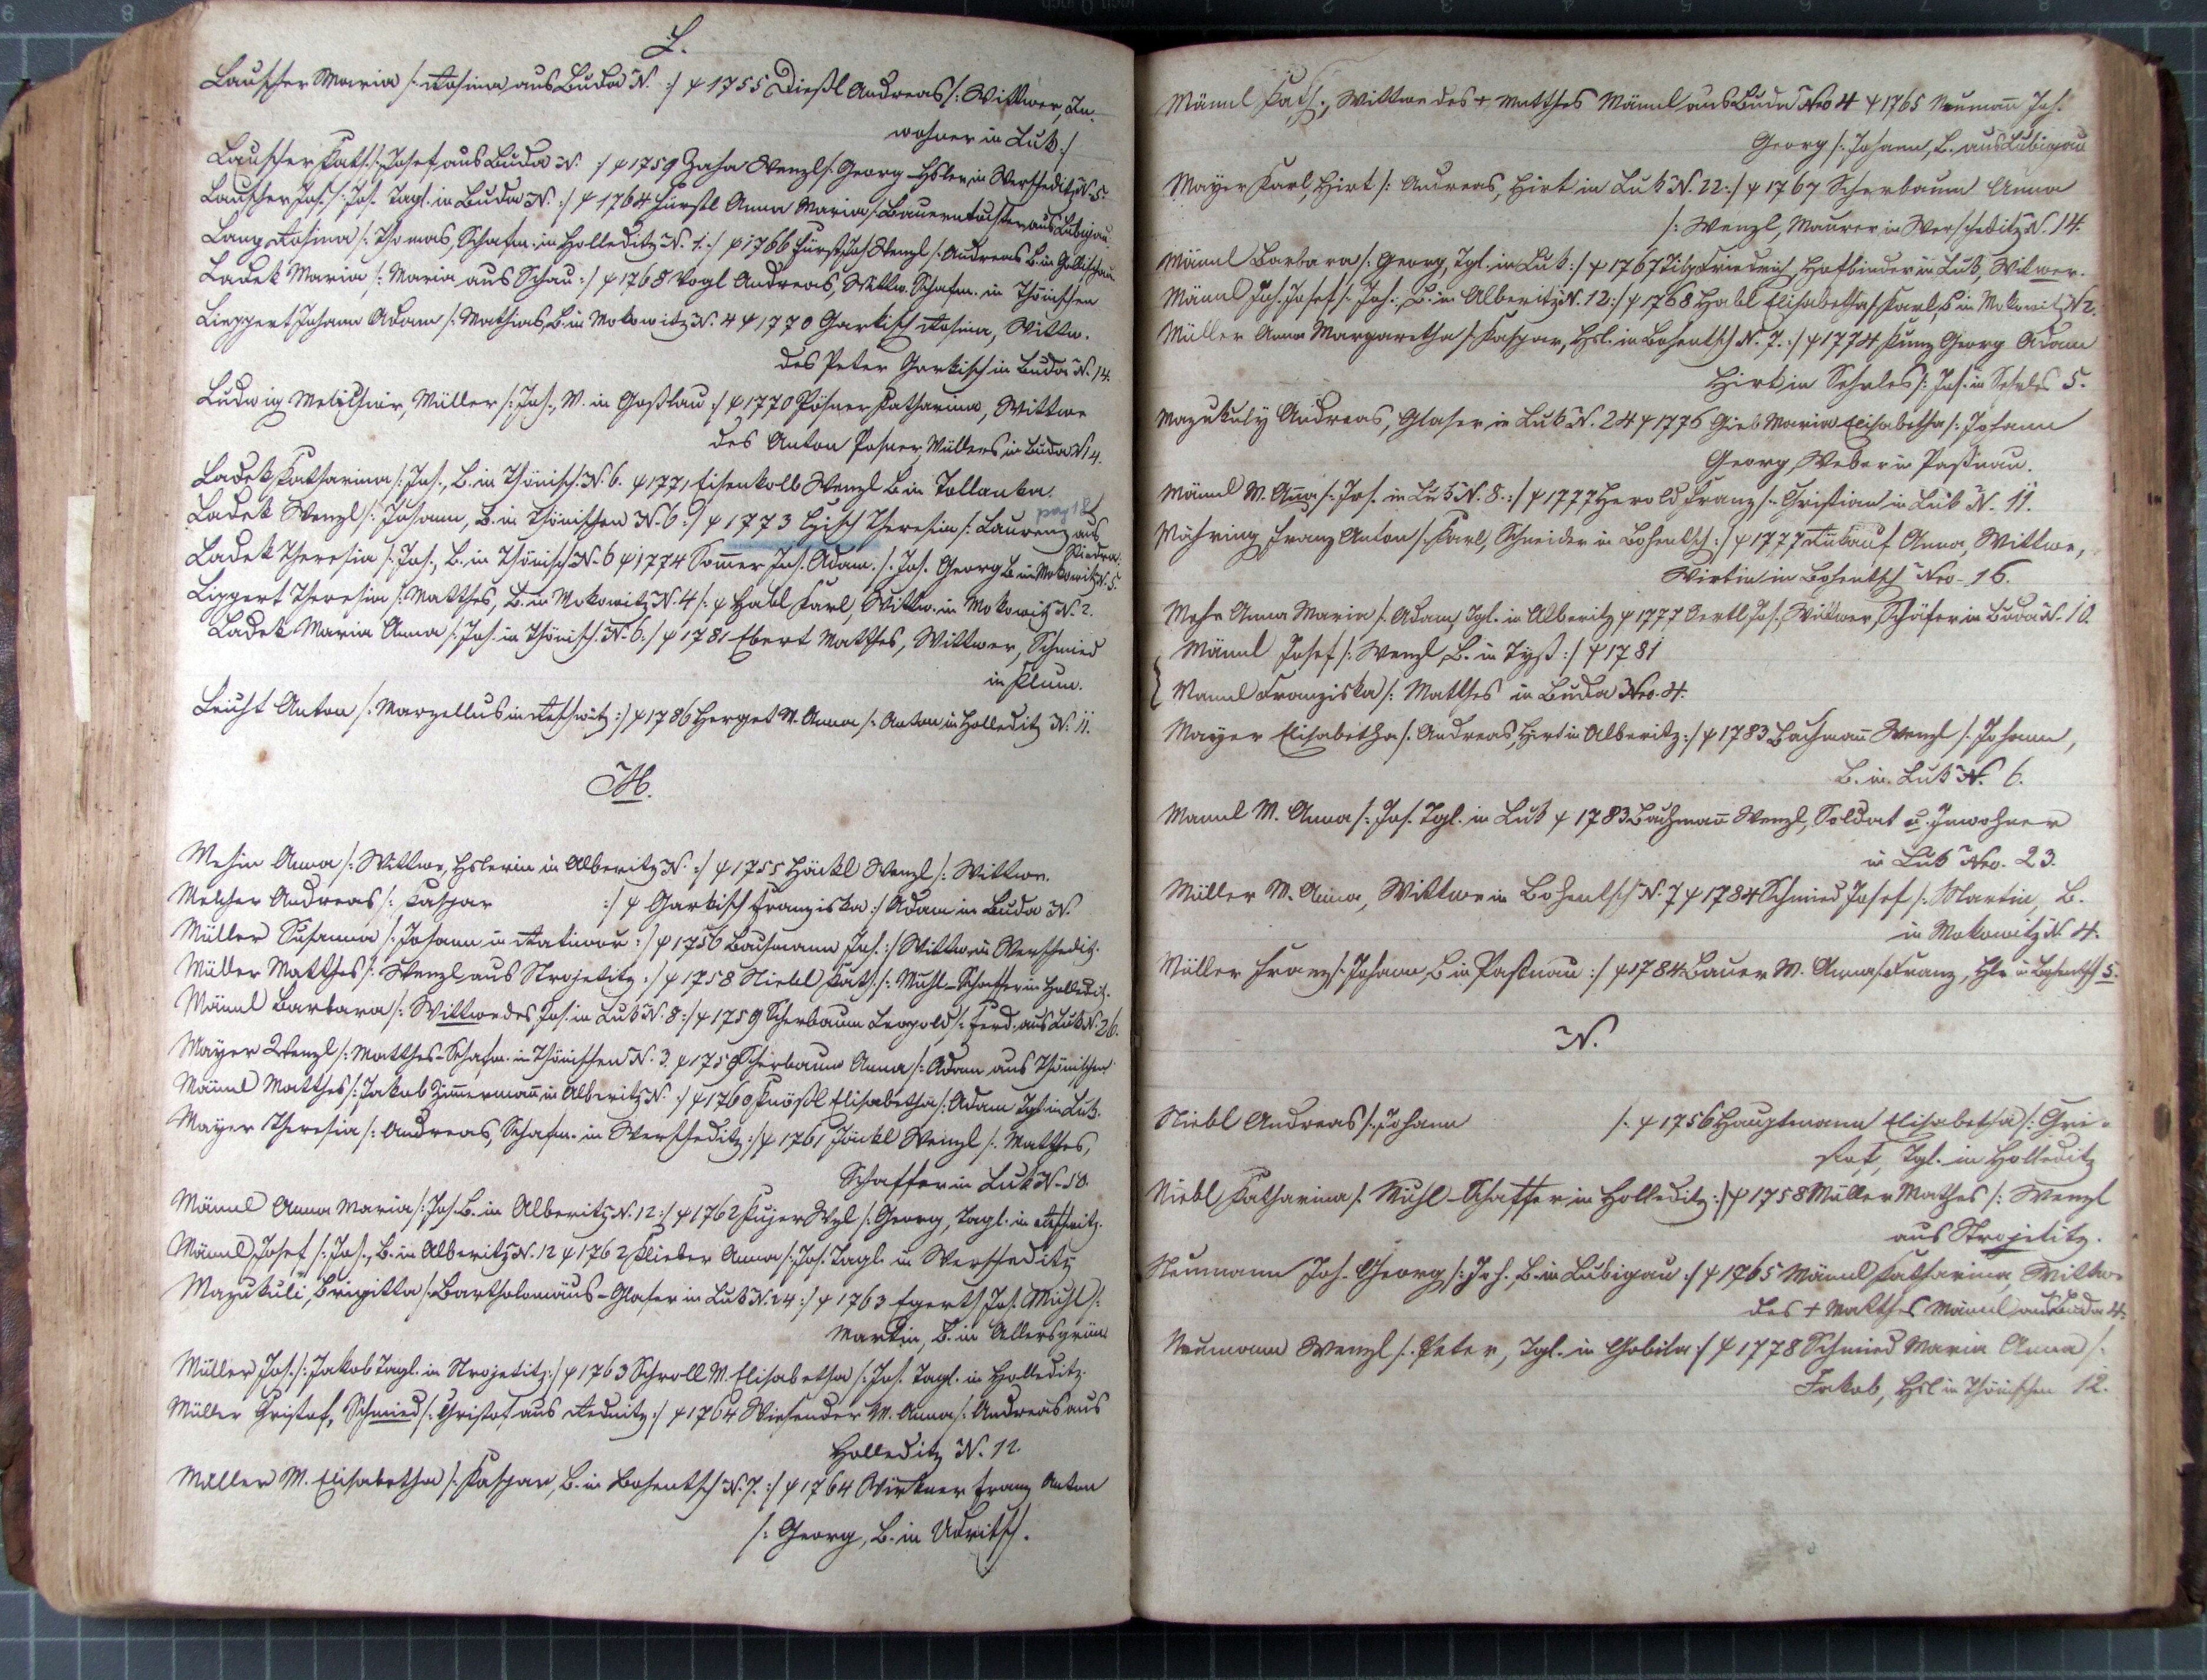 L.
Lauscher Maria /: Rosina aus Buda N. :/ 1755 Dießl Andreas /: Wittwer, In-
wohner in Luk :/
Lauscher Kath. /: Josef aus Buda N. :/ 1759 Wenzl /: Georg Hsler in Werscheditz N. 5.
Lauscher Jos. /: Jos. Tagl. in Buda N. :/ 1764 Anna Maria /: Bauerntochter aus Lubigau.
Lang Rosina /: Thomas, Schafm. in Holleditz N. 1. :/ 1766 Wenzl /: Andreas B. in
Ladek Maria /: Maria aus Schau :/ 1768 Vogl Andreas, Wittw. Schafm. in Thönischen
Lieppert Johann Adam /: Mathias, B. in Mokowitz N. 4 1770 Garkisch Rosina, Wittw.
des Peter Garkisch in Buda N. 14.
Ludwig Melchior, Müller /: Joh., M. in Goßlau :/ 1770 Pößner Katharina, Wittwe
des Anton Poßner, Müllers in Buda N 14.
Ladek Katharina /: Joh., B. in Thönisch. N. 6. 1771 Eisenkolb Wenzl B. in Tollanka.
pag 18
Ladek Wenzl /: Johann, B. in Thönischen N. 6 :/ 1773 Theresia /: Laurenz aus
Ladek Theresia /: Joh., B. in Thönisch N. 6 1774 Sommer Joh. Adam. /: Joh. Georg B. in Mokowitz N. 5.
Lippert Theresia /: Matthes, B. in Mokowitz N. 4 /: Habl Karl, Wittw. in Mokowitz N. 2.
Ladek Maria Anna /: Joh. in Thönisch. N. 6. :/ 1781 Ebert Matthes, Wittwer, Schmied
in Klum.
Leicht Anton /: Marzellus in Reschwitz :/ 1786 Herget M. Anna /: Anton in Holleditz N. 11.
M.
Anna /: Wittwe, Hslerin in Alberitz N. :/ 1755 Häckl Wenzl /: Wittwer.
Melcher Andreas /: Kaspar :/ Garkisch Franziska :/ Adam in Buda N.
Müller Susanna /: Johann in Ratiwor :/ 1756 Bachmann Joh. :/ Wittwer in Werschedit.
Müller Matthes /: Wenzl aus Strojetitz :/ 1758 Niebl Kath. /: Mühl-Schaffer in Holledit.
Männl Barbara /: Wittwe des Joh. in Luk N. 8 :/ 1759 Scherbaum Leopold /: Ferd. aus Luk N. 26.
Mayer Wenzl /: Matthes-Schafm. in Thönischen N. 3. 1759 Scherbaum Anna /: Adam aus Thönischen
Männl Matthes /: Jakob Zimmermann in Alberitz N. :/ 1760 Knößl Elisabetha /: Adam Tgl. in Luk.
Mayer Theresia /: Andreas, Schafm. in Werscheditz :/ 1761 Jäckl Wenzl /: Matthes,
Schaffer in Luk N. 50.
Männl Anna Maria /: Joh. B. in Alberitz N. 12 :/ 1762 Wzl /: Georg, Tagl. in Reschwitz.
Männl Josef /: Joh., B. in Alberitz N. 12 1762 Klieber Anna /: Joh. Tagl. in Werscheditz
Mazukuli, Brigitta /: Bartholomäus - Glaser in Luk N. 24 :/ 1763 Egert Joh. Michl /:
Martin, B. in Allersgrün
Müller Jos. /: Jakob Tagl. in Strojetitz :/ 1763 Schroll M. Elisabetha /: Joh. Tagl. in Holleditz
Müller Christof, Schmied /: Christof, aus Rednitz :/ 1764 Wiesender M. Anna /: Andreas aus
Holleditz N. 12
Müller M. Elisabetha /: Kaspar, B. in Bohentsch N. 7. :/ 1764 Wirkner Franz Anton
/: Georg, B. in Udritsch.
Männl Kath., Wittwe des + Matthes Männl aus Buda Nro 4 1765 Neumann Joh.
Georg /: Johann, B. aus Lubigau
Mayer Karl, Hirt /: Andreas, Hirt in Luk N. 22 :/ 1767 Scherbaum Anna
/: Wenzl, Maurer in Werscheditz N. 14.
Männl Barbara /: Georg, Tgl. in Luk :/ 1767 Friedrich Hofbinder in Luk, Witwer.
Männl Joh. Josef /: Joh., B. in Alberitz N. 12 :/ 1768 Habl Elisabetha /: Karl, B. in Mokowitz N 2.
Müller Anna Margaretha /: Kaspar, Hsl. in Bohentsch N. 7. :/ 1774 Kunz Georg Adam
Hirt in Sehrles /: Joh. in Sehrles 5.
Mazukuly Andreas, Glaser in Luk N. 24 1776 Gieb Maria Elisabetha /: Johann
Georg, Weber in Paßnau.
Männl M. Anna /: Jos. in Luk N. 8. :/ 1777 Herold Franz /: Christian in Luk N. 11.
Mähring Franz Anton /: Karl, Schneider in Bohentsch :/ 1777 Ankauf Anna, Wittwe,
Wirtin in Bohentsch Nro. 16.
Anna Maria /: Adam, Tgl. in Alberitz 1777 Oertl Joh., Wittwer, Schäfer in Buda N. 10.
Männl Josef /: Wenzl, B. in Tyß :/ 1781
Männl Franziska /: Matthes in Buda Nro. 4.
Mayer Elisabetha /: Andreas, Hirt in Alberitz :/ 1783 Bachmann Wenzl /: Johann,
B. in Luk N. 6.
Männl M. Anna /: Jos. Tgl. in Luk 1783 Bachmann Wenzl, Soldat u. Inwohner
in Luk Nro. 23.
Müller M. Anna, Wittwe in Bohentsch N. 7 1784 Schmied Josef /: Martin, B.
in Mokowitz N. 4.
Müller Franz /: Johann, B. in Paßnau :/ 1784 Bauer M. Anna /: Franz, Hsl. in Bohentsch 5.
N.
Niebl Andreas /: Johann /: 1756 Hauptmann Elisabetha /: Chri-
stof, Tgl. in Holleditz
Niebl Katharina /: Mühl-Schaffer in Holleditz :/ 1758 Müller Mathes /: Wenzl
aus Strojetitz.
Neumann Joh. Georg /: Joh. B. in Lubigau :/ 1765 Männl Katharina, Wittwe
des + Matthes Männl aus Buda 4.
Neumann Wenzl /: Peter, Tgl. in Chobila :/ 1778 Schmied Maria Anna /:
Jakob, Hsl in Thönischen 12.